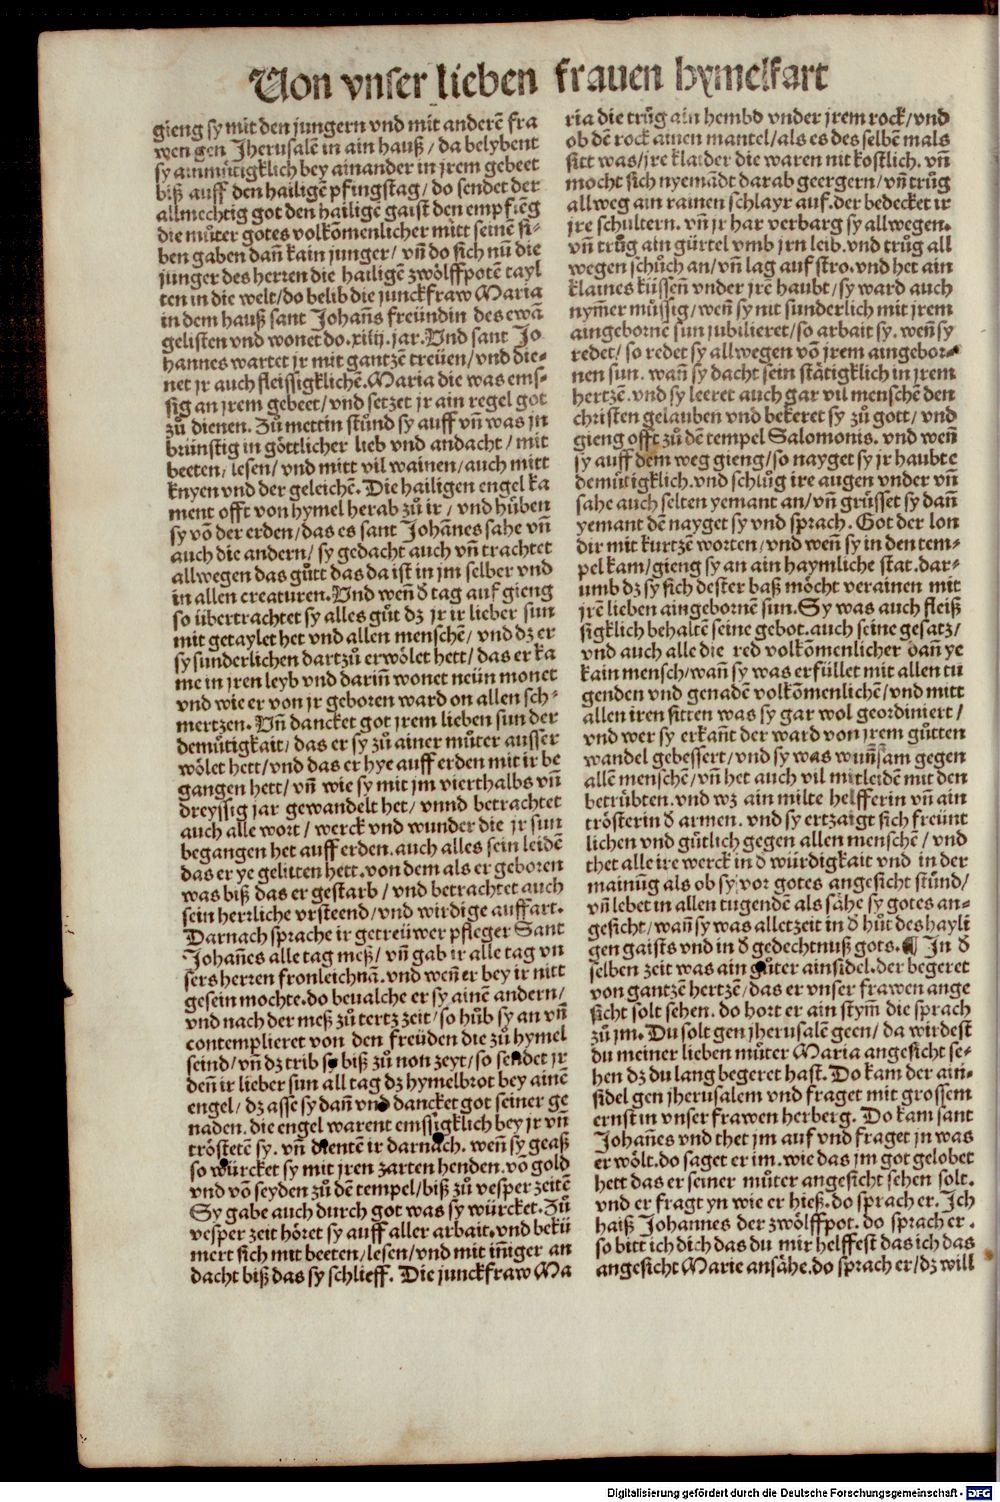 Von vnser lieben frauen hymelfart
gieng sy mit den jungern vnd mit anderē fra
wen gen Jherusalē in ain hauß / da belybent
sy ainmütigklich bey ainander in jrem gebeet
biß auff den hailigē pfingstag / do sendet der
allmechtig got den hailigē gaist den empfieng
die můter gotes volkōmenlicher mitt seinē si-
ben gaben dañ kain junger / vñ do sich nū die
junger des herren die hailigē zwölffpotē tayl
ten in die welt / do belib die junckfraw Maria
in dem hauß sant Johañs freündin des ewā
gelisten vnd wonet do .xiiij. jar. Vnd sant Jo
hannes wartet jr mit gantzē treüen / vnd die-
net jr auch fleissigklichē. Maria die was ems-
sig an jrem gebeet / vnd setzet jr ain regel got
zů dienen. Zů mettin stůnd sy auff vñ was jn
brünstig in göttlicher lieb vnd andacht / mit
beeten / lesen / vnd mitt vil wainen / auch mitt
knyen vnd der geleichē. Die hailigen engel ka
ment offt von hymel herab zů ir / vnd hůben
sy vō der erden / das es sant Johānes sahe vñ
auch die andern / sy gedacht auch vñ trachtet
allwegen das gůtt das da ist in jm selber vnd
in allen creaturen. Vnd weñ d̄ tag auf gieng
so übertrachtet sy alles gůt dz jr ir lieber sun
mit getaylet het vnd allen menschē / vnd dz er
sy sunderlichen dartzů erwölet hett / das er ka
me in jren leyb vnd dariñ wonet neün monet
vnd wie er von jr geboren ward on allen sch-
mertzen. Vñ dancket got jrem lieben sun der
demütigkait / das er sy zů ainer můter ausser
wölet hett / vnd das er hye auff erden mit ir be
gangen hett / vñ wie sy mit jm vierthalbs vñ
dreyssig jar gewandelt het / vnnd betrachtet
auch alle wort / werck vnd wunder die jr sun
begangen het auff erden. auch alles sein leidē
das er ye gelitten hett. von dem als er geboren
was biß das er gestarb / vnd betrachtet auch
sein herrliche vrsteend / vnd wirdige auffart.
Darnach sprache ir getreüwer pfleger Sant
Johañes alle tag meß / vñ gab ir alle tag vn
sers herren fronleichnā. vnd weñ er bey ir nitt
gesein mochte. do beualche er sy ainē andern /
vnd nach der meß zů tertz zeit / so hůb sy an vñ
contemplieret von den freüden die zů hymel
seind / vñ dz trib sy biß zů non zeyt / so sendet jr
deñ ir lieber sun all tag dz hymelbrot bey ainē
engel / dz asse sy dañ vnd dancket got seiner ge
naden. die engel warent emssigklich bey jr vñ
tröstetē sy. vñ dientē ir darnach. weñ sy geaß
so würcket sy mit jren zarten henden. vō gold
vnd vō seyden zů dē tempel / biß zů vesper zeitē
Sy gabe auch durch got was sy würcket. Zů
vesper zeit höret sy auff aller arbait. vnd bekü
mert sich mit beeten / lesen / vnd mit iñiger an
dacht biß das sy schlieff. Die junckfraw Ma
ria die trůg ain hembd vnder jrem rock / vnd
ob dē rock ainen mantel / als es des selbē mals
sitt was / jre klaider die waren nit kostlich. vñ
mocht sich nyemādt darab geergern / vñ trůg
allweg ain rainen schlayr auf. der bedecket ir
jre schultern. vñ jr har verbarg sy allwegen.
vñ trůg ain gürtel vmb jrn leib. vnd trůg all
wegen schůch an / vñ lag auf stro. vnd het ain
klaines küssen vnder jrē haubt / sy ward auch
nymer müssig / weñ sy nit sunderlich mit jrem
aingebornē sun jubilieret / so arbait sy. weñ sy
redet / so redet sy allwegen vō jrem aingebor-
nen sun. wañ sy dacht sein stätigklich in jrem
hertzē. vnd sy leeret auch gar vil menschē den
christen gelauben vnd bekeret sy zů gott / vnd
gieng offt zů dē tempel Salomonis. vnd weñ
sy auff dem weg gieng / so nayget sy jr haubte
demütigklich. vnd schlůg ire augen vnder vñ
sahe auch selten yemant an / vñ grüsset sy dañ
yemant dē nayget sy vnd sprach. Got der lon
dir mit kurtzē worten / vnd weñ sy in den tem-
pel kam / gieng sy an ain haymliche stat. dar-
umb dz sy sich dester baß möcht verainen mit
jrē lieben aingebornē sun. Sy was auch fleiß
sigklich behaltē seine gebot. auch seine gesatz /
vnd auch alle die red volkōmenlicher dañ ye
kain mensch / wañ sy was erfüllet mit allen tu
genden vnd genadē volkōmenlichē / vnd mitt
allen iren sitten was sy gar wol geordiniert /
vnd wer sy erkañt der ward von jrem gůtten
wandel gebessert / vnd sy was wuñsam gegen
allē menschē / vñ het auch vil mitleidē mit den
betrübten. vnd wz ain milte helfferin vñ ain
trösterin d̄ armen. vnd sy ertzaigt sich freünt
lichen vnd gütlich gegen allen menschē / vnd
thet alle ire werck in d̄ würdigkait vnd in der
mainūg als ob sy vor gotes angesicht stůnd /
vñ lebet in allen tugendē als sähe sy gotes an-
gesicht / wañ sy was alletzeit in d̄ hůt des hayli
gen gaists vnd in d̄ gedechtnuß gots. ¶ In d̄
selben zeit was ain gůter ainsidel. der begeret
von gantzē hertzē / das er vnser frawen ange
sicht solt sehen. do hort er ain stym̄ die sprach
zů jm. Du solt gen jherusalē geen / da wirdest
du meiner lieben můter Maria angesicht se-
hen dz du lang begeret hast. Do kam der ain-
sidel gen jherusalem vnd fraget mit grossem
ernst in vnser frawen herberg. Do kam sant
Johañes vnd thet jm auf vnd fraget jn was
er wölt. do saget er im. wie das jm got gelobet
hett das er seiner můter angesicht sehen solt.
vnd er fragt yn wie er hieß. do sprach er. Ich
haiß Johannes der zwölffpot. do sprach er.
so bitt ich dich das du mir helffest das ich das
angesicht Marie ansähe. do sprach er / dz will
Digitalisierung gefördert durch die Deutsche Forschungsgemeinschaft - DFG